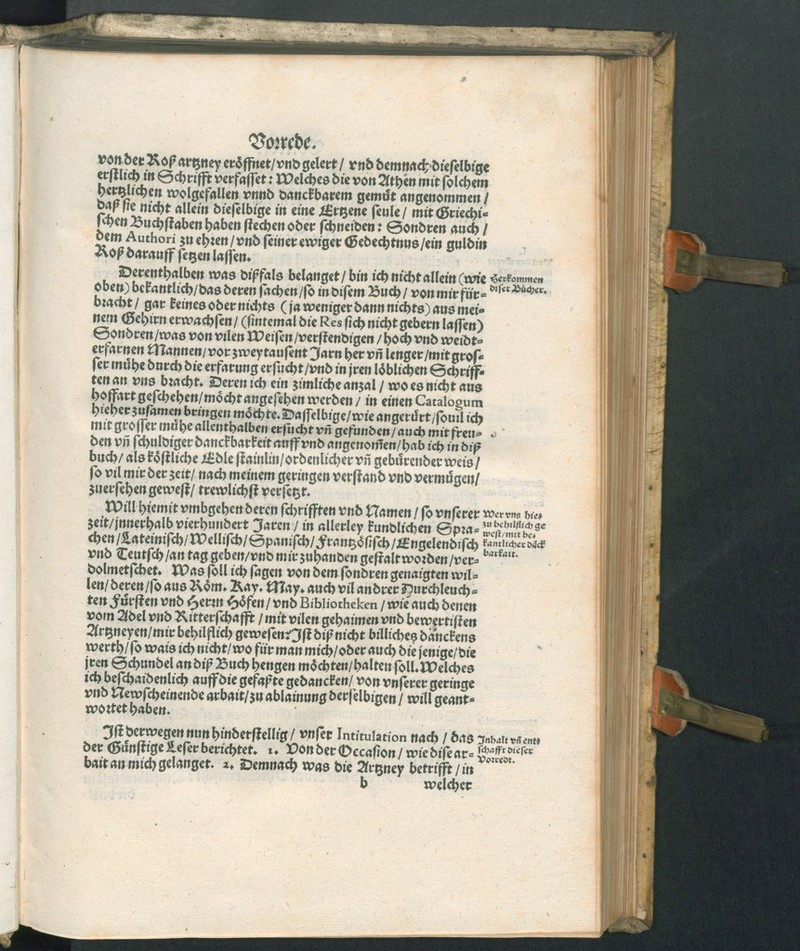 Vorrede.
von der Roß artzney eröffnet/vnd gelert/ vnd demnach dieselbige
erstlich in Schrifft verfasset: Welches die von Athen mit solchem
hertzlichen wolgefallen vnnd danckbarem gemüt angenommen/
daß sie nicht allein dieselbige in eine Ertzene seule/ mit Griechi-
schen Buchstaben haben stechen oder schneiden: Sondren auch/
dem Authori zu ehren/vnd seiner ewiger Gedechtnus/ein guldin
Roß darauff setzen lassen.
Derenthalben was dißfals belanget/ bin ich nicht allein (wie
oben) bekantlich/das deren sachen/so in disem Buch/ von mir für-
bracht/ gar keines oder nichts (ja weniger dann nichts) aus mei-
nem Gehirn erwachsen/ (sintemal die Res sich nicht gebern lassen)
Sondren/was von vilen Weisen/verstendigen/ hoch vnd weidt-
erfarnen Mannen/vor zwey tausent Jarn her vñ lenger/mit gros-
ser mühe durch die erfarung ersucht/vnd in jren löblichen Schriff-
ten an vns bracht. Deren ich ein zimliche anzal/ wo es nicht aus
hoffart geschehen/möcht angesehen werden/ in einen Catalogum
hieher zusamen bringen möchte. Dasselbige/wie angerürt/souil ich
mit grosser mühe allenthalben ersucht vñ gefunden/auch mit freu-
den vñ schuldiger danckbarkeit auff vnd angenom̃en/hab ich in diß
buch/ als köstliche Edle stainlin/ordenlicher vñ gebürender weis/
so vil mir der zeit/ nach meinem geringen verstand vnd vermügen/
zuersehen gewest/ trewlichst versetzt.
Herkommen
diser Bücher.
Will hiemit vmbgehen deren schrifften vnd Namen/ so vnserer
zeit/jnnerhalb vierhundert Jaren/ in allerley kundlichen Spra-
chen/Lateinisch/Wellisch/Spanisch/Frantzösisch/Engelendisch
vnd Teutsch/an tag geben/vnd mir zuhanden gestalt worden/ver-
dolmetschet. Was soll ich sagen von dem sondren genaigten wil-
len/deren/so aus Röm. Kay. May. auch vil andrer Durchleuch-
ten Fürsten vnd Herrn Höfen/vnd Bibliotheken/wie auch denen
vom Adel vnd Ritterschafft/ mit vilen gehaimen vnd bewertisten
Artzneyen/mir behilflich gewesen: Ist diß nicht billiches danckens
werth/so wais ich nicht/wo für man mich/oder auch die jenige/die
jren Schundel an diß Buch hengen möchten/halten soll. Welches
ich beschaidenlich auff die gefaßte gedancken/ von vnserer geringe
vnd Newscheinende arbait/zu ablainung derselbigen/ will geant-
wortet haben.
Wer vns hie-
zu behilflich ge
west/mit be-
kantlicher dāck
barkait.
Ist derwegen nun hinderstellig/ vnser Intitulation nach/ das
der Günstige Leser berichtet. 1. Von der Occasion/ wie dise ar-
bait an mich gelanget. 2. Demnach was die Artzney betrifft/in
Inhalt vñ ent-
schafft dieser
Vorredt.
b welcher